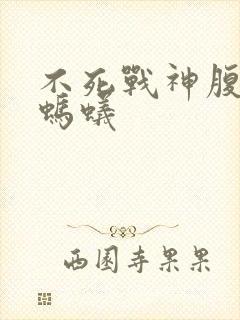 不死戰神腹
螞蟻
西園寺果果